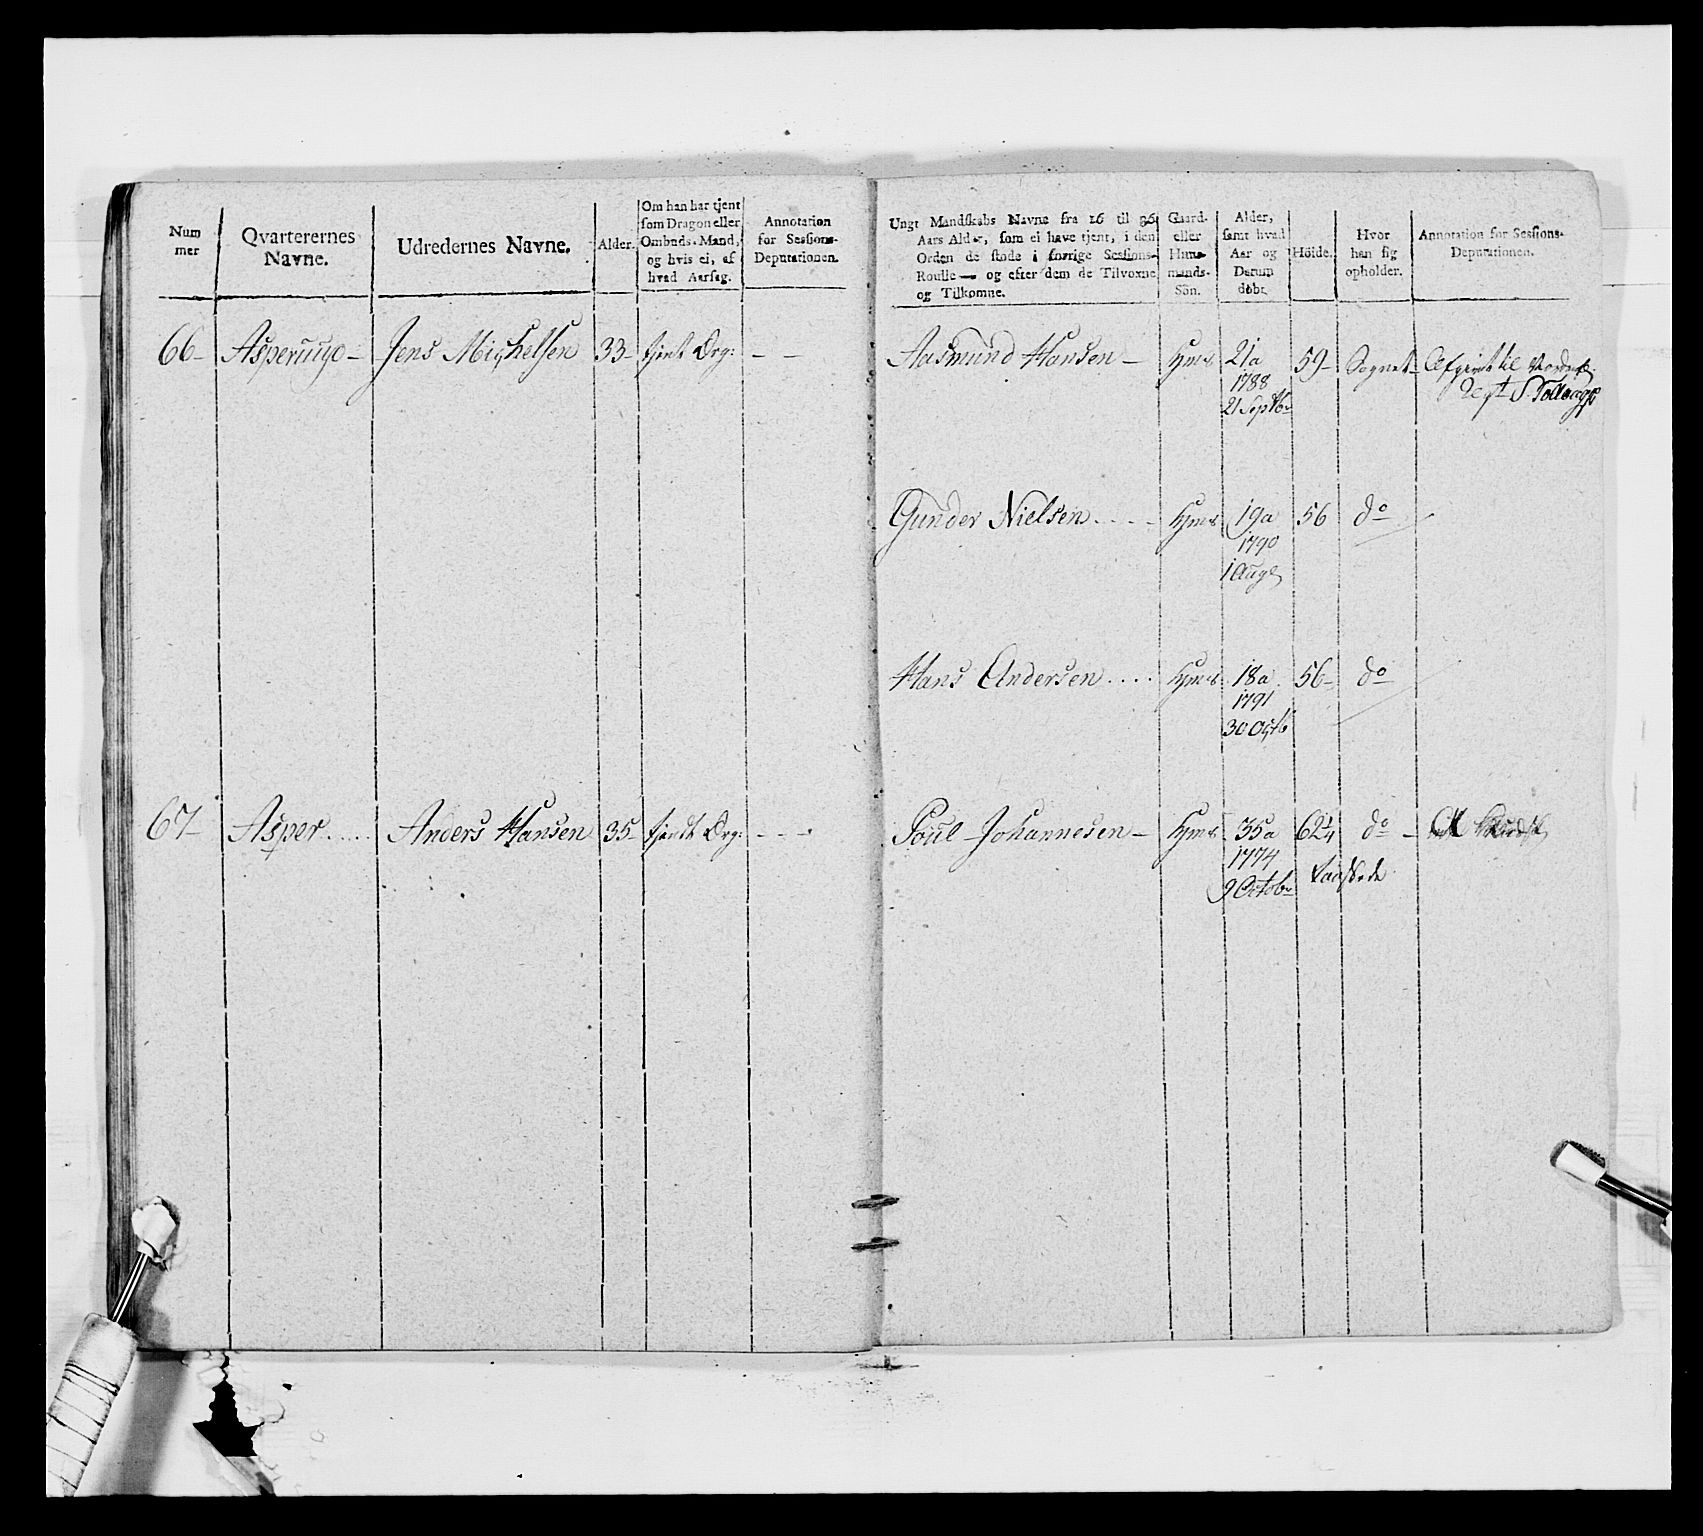 Num
mer
Qvarterernes
Navne.
Udredernes Navne.
Alder.
Om han har tjent
som Dragon eller
Ombuds-Mand,
og hvis ei, af
hvad Aarsag.
Annotation
for Sessions-
Deputationen.
66- Asperuugo- Jens Michelsen 33- tjent Drg: - -
67- Asper..... Anders Hansen 35- tjendt Drg: - - -
Ungt Mandskabs Navne fra 16 til 36
Aars Alder, som ei have tjent, i den
Orden de stode i forrige Sessions-
Roulle — og efter dem de Tilvoxne
og Tilkomne.
Gaard-
eller
Huus-
mands-
Sön.
Alder,
samt hvad
Aar og
Datum
döbt.
Höide.
Hvor
han sig
opholder.
Annotation for Sessions-
Deputationen.
Aasmund Hansen - Hms 21a 59- Sognet- Afgivet til
1788
21 Septbr
Gunder Nielsen.... Hms 19a 56 do
1790
1 Aug
Hans Andersen.... Hms 18a 56- do
1791
30 Octb
Poul Johannesen- Hms 35a 62¼ do -
1774
9 Octobr